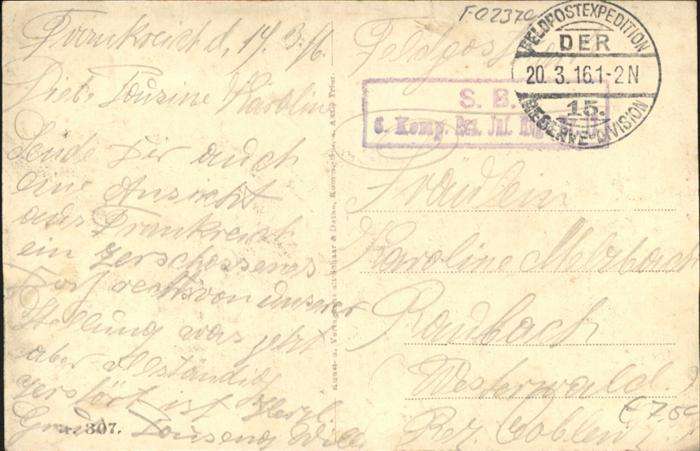 Frankreich d, 17.3.16
Liebe Cousine Karoline
Sende Dir auch
eine Ansicht
aus Frankreich
ein zerschossenes
Dorf rechts von unserer
Stellung was jetzt
aber vollständig
zerstört ist Herzl.
Gruß Cousin Willi
307.
F02370
Feldpost
FELDPOSTEXPEDITION
DER
20.3.16.1-2N
15.
RESERVE-DIVISION
S. B.
6. Komp. Res. Inf.
Fräulein
Karoline Melzbach
Raubach
Westerwald
Bez. Coblenz
€7.50